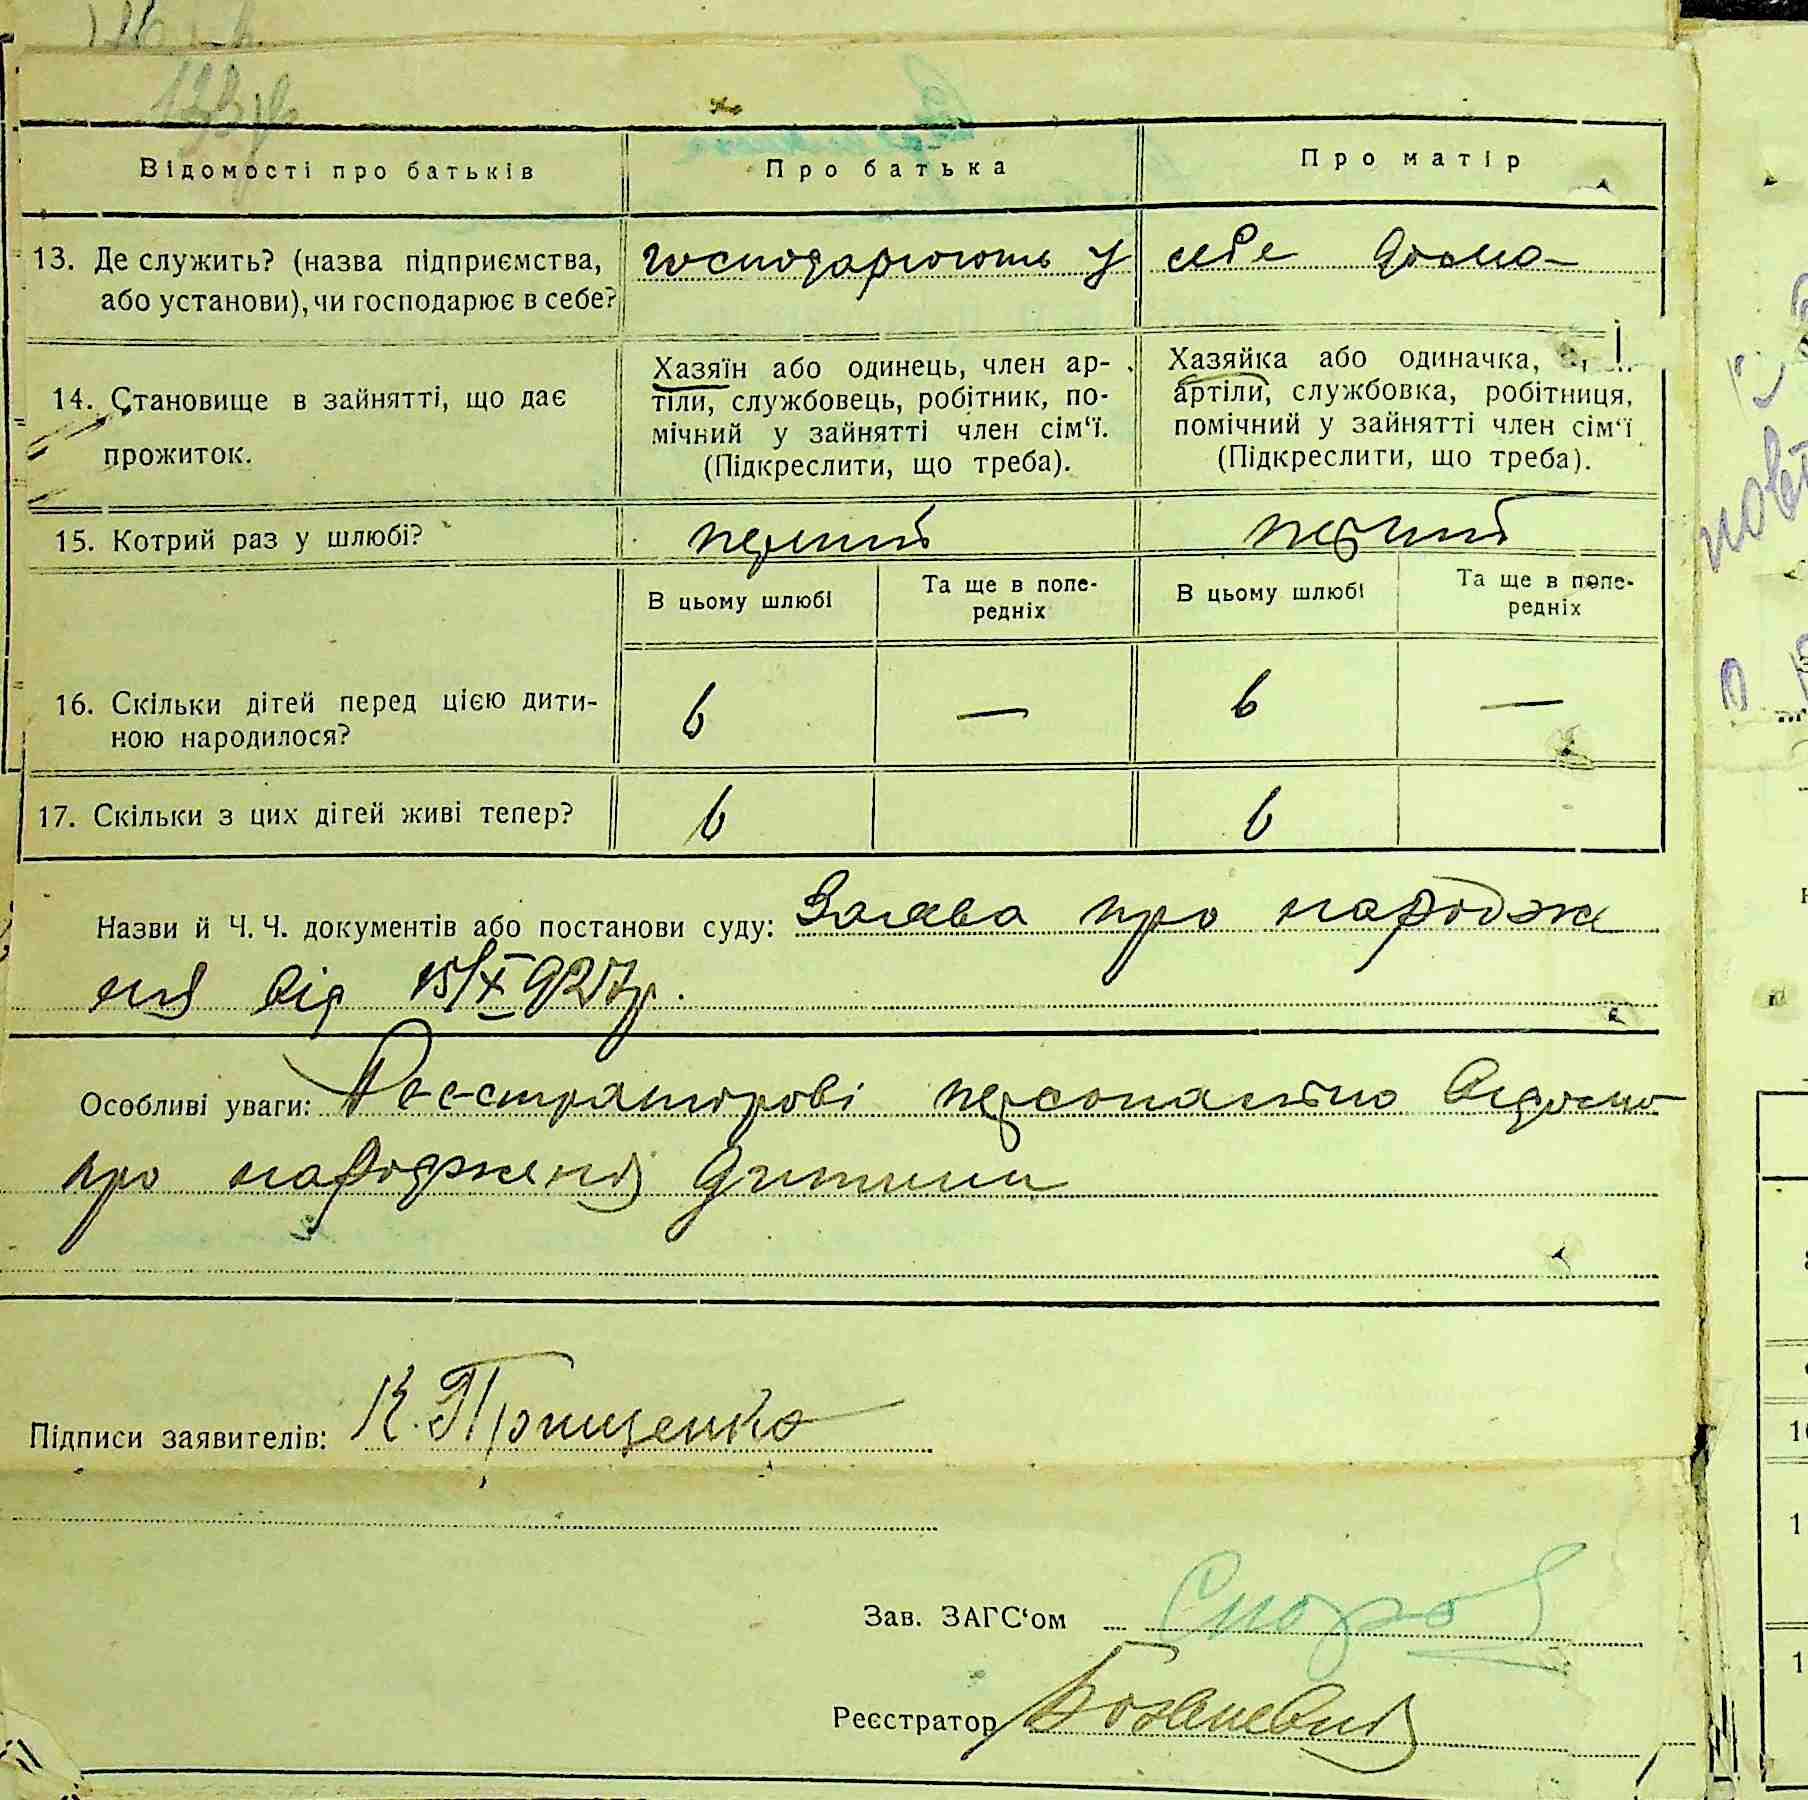 Відомості про батьків
Про батька
Про матір
13. Де служить? (назва підприємства,
або установи), чи господарює в себе?
господарюють у себе дома
14. Становище в зайнятті, що дає
прожиток.
Хазяїн або одинець, член ар-
тіли, службовець, робітник, по-
мічний у зайнятті член сім‘ї.
(Підкреслити, що треба).
Хазяйка або одиначка,
артіли, службовка, робітниця,
помічний у зайнятті член сім‘ї
(Підкреслити, що треба).
15. Котрий раз у шлюбі?
перший
перший
В цьому шлюбі
Та ще в попе-
редніх
В цьому шлюбі
Та ще в попе-
редніх
16. Скільки дітей перед цією дити-
ною народилося?
6
—
6
—
17. Скільки з цих дітей живі тепер?
6
6
Назви й Ч. Ч. документів або постанови суду: Заява про народже
ня від 15/X 927р.
Особливі уваги: Реєстраторові персонально відомо
про народження дитини
Підписи заявителів: К. Прищенко
Зав. ЗАГС‘ом
Реєстратор